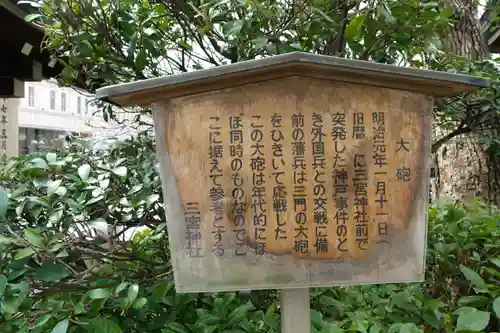 大砲
明治元年一月十一日(
旧暦 に三宮神社前で
突発した神戸事件のと
き外国兵との交戦に備
前の藩兵は三門の大砲
をひきいて応戦した
この大砲は年代的にほ
ぼ同時のものなのでこ
こに据えて参考とする
三宮神社
七年三